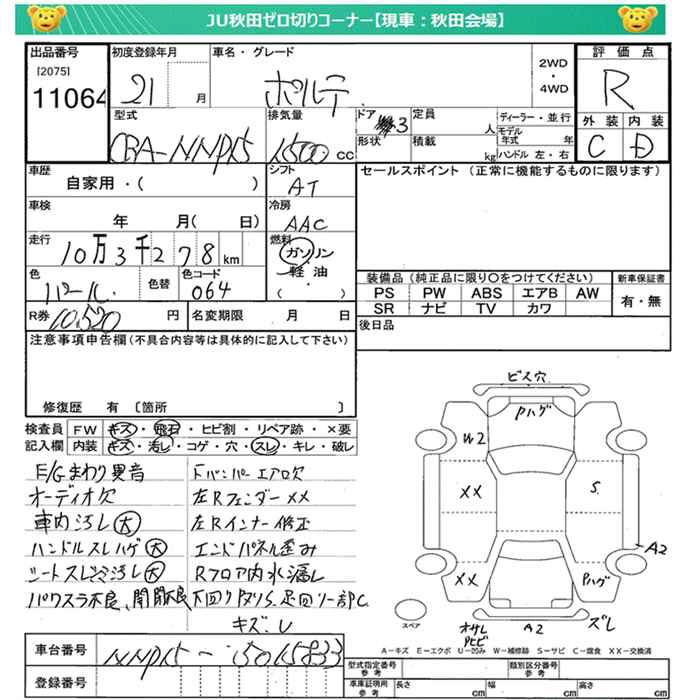 JU秋田ゼロ切りコーナー【現車：秋田会場】
出品番号
[2075]
11064
初度登録年月
21 月
車名・グレード
ポルテ
2WD
・
4WD
評価点
R
外装 内装
C D
型式
CBA-NNP15
排気量
1500 cc
ドア 3
形状
定員 人
積載 kg
ディーラー・並行
モデル年式 年
ハンドル 左・右
車歴
自家用・( )
シフト
AT
セールスポイント (正常に機能するものに限ります)
車検
年 月( 日)
冷房
AAC
走行
10万3千278km
燃料
ガソリン
・
軽油
・
( )
色
パール
色替
色コード
064
装備品 (純正品に限り○をつけてください)
PS PW ABS エアB AW
SR ナビ TV カワ
新車保証書
有・無
R券 10,520 円
名変期限 月 日
後日品
注意事項申告欄(不具合内容等は具体的に記入して下さい)
修復歴 有 〔箇所 〕
検査員記入欄
FW キズ・飛石・ヒビ割・リペア跡・×要
内装 キズ・汚レ・コゲ・穴・スレ・キレ・破レ
E/Gまわり異音
オーディオ欠
車内汚レ(大)
ハンドルスレハゲ(大)
シートスレシミ汚レ(大)
パワスラ不良、開閉不良
下バンパーエアロ欠
左Rフェンダー××
左Rインナー修正
エンドパネル歪み
Rフロア内水漏レ
下回りタワS.足回り一部C
キズ.U
ビス穴
Pハゲ
W2
××
S.
A2
××
Pハゲ
スペア
オサレ
Pヒビ
A2
ズレ
A－キズ E－エクボ U－凹み W－補修跡 S－サビ C－腐食 ××－交換済
車台番号
NNP15-5015833
登録番号
型式指定番号
参考
類別区分番号
参考
車庫証明用
参考
長さ cm
幅 cm
高さ cm